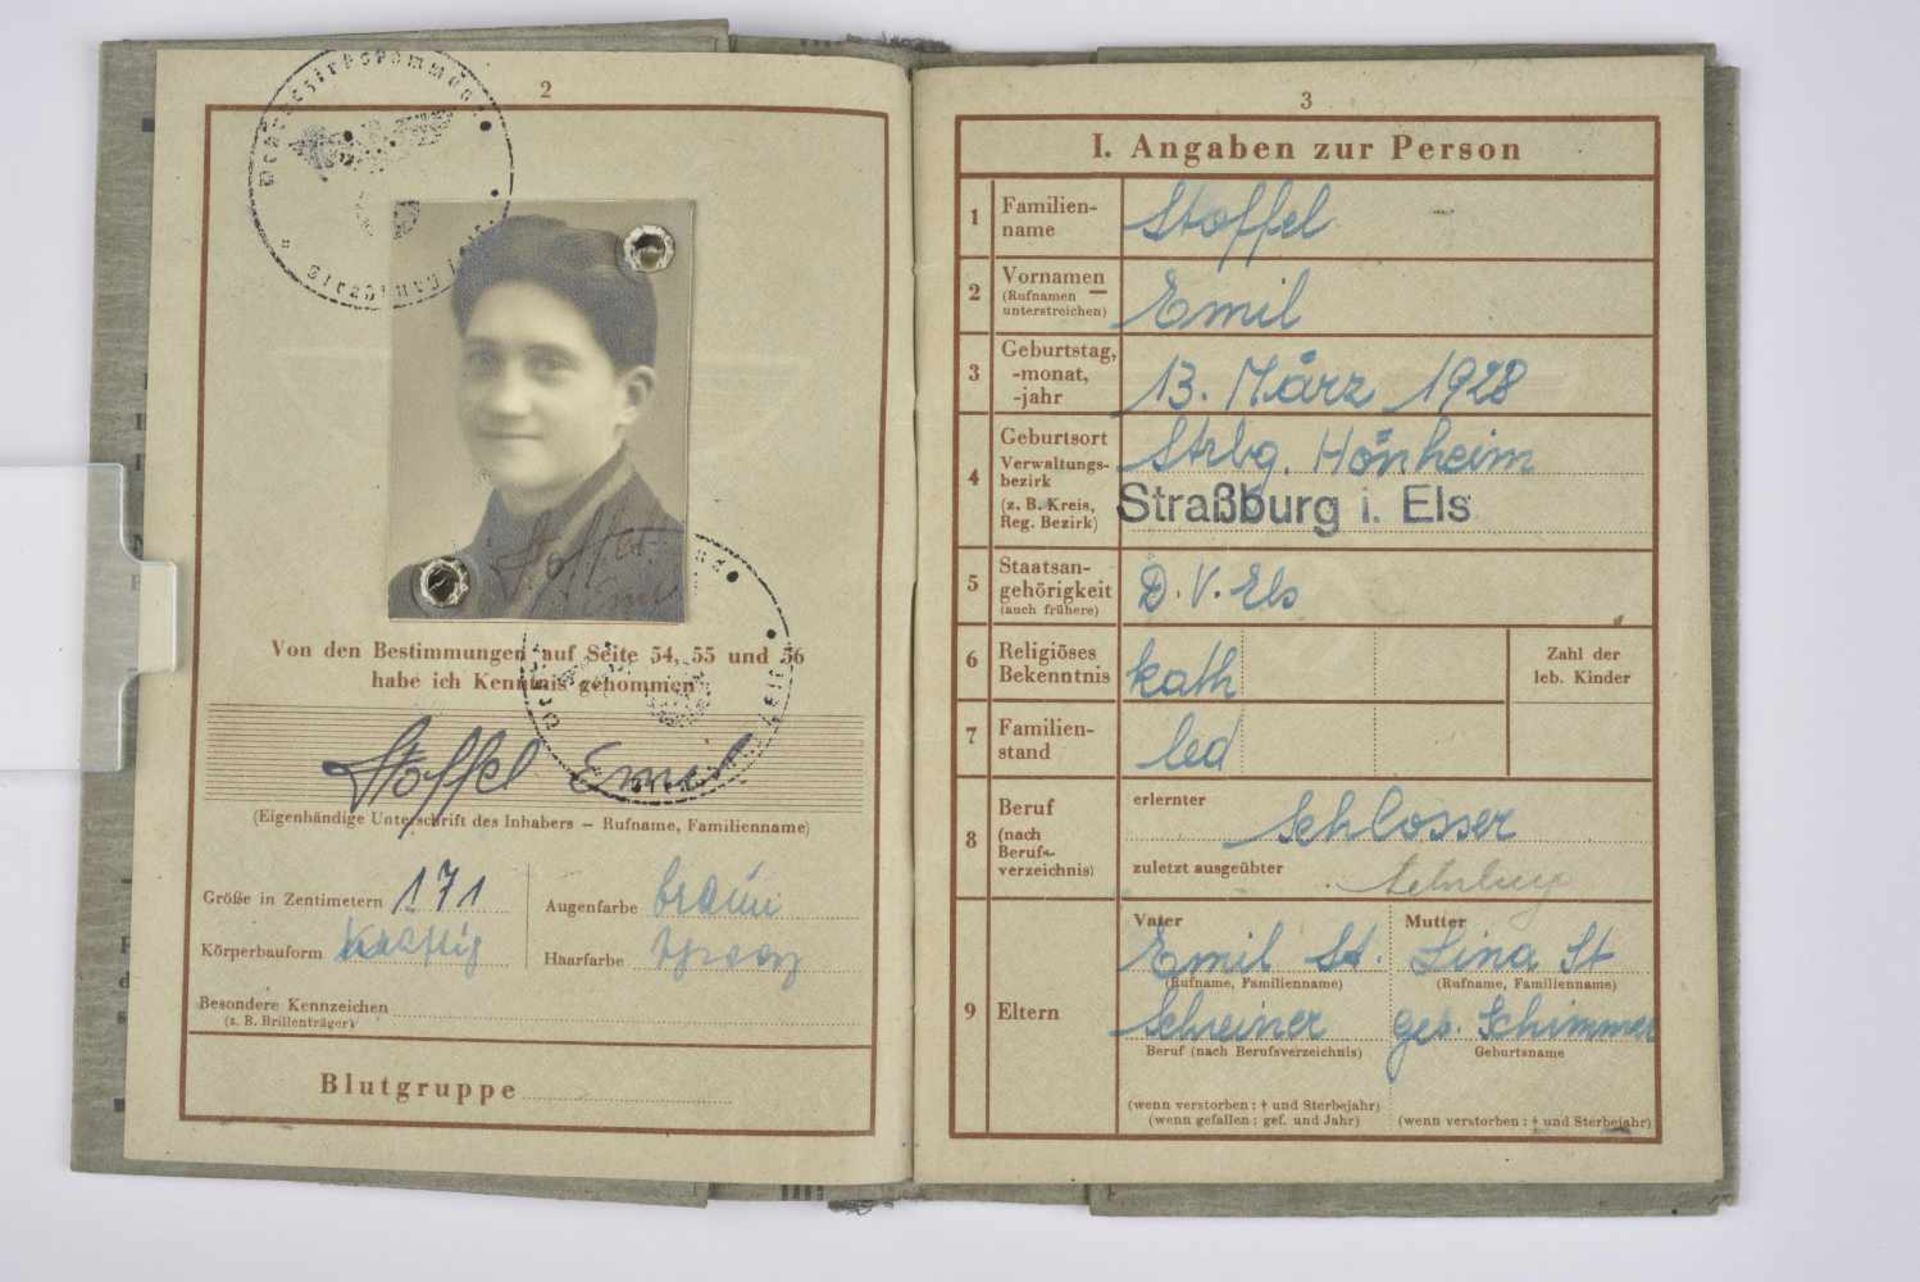 2
Wehrbezirkskommando
Von den Bestimmungen auf Seite 54, 55 und 56
habe ich Kenntnis genommen
Stoffel Emil
(Eigenhändige Unterschrift des Inhabers — Rufname, Familienname)
Größe in Zentimetern 171
Augenfarbe braun
Körperbauform kräftig
Haarfarbe
Besondere Kennzeichen
(z. B. Brillenträger)
Blutgruppe
3
I. Angaben zur Person
1 Familien-
name
Stoffel
2 Vornamen
(Rufnamen
unterstreichen)
Emil
3 Geburtstag,
-monat,
-jahr
13. März 1928
4 Geburtsort
Verwaltungs-
bezirk
(z. B. Kreis,
Reg. Bezirk)
Strbg. Hönheim
Straßburg i. Els
5 Staatsan-
gehörigkeit
(auch frühere)
D. V. Els
6 Religiöses
Bekenntnis
kath
Zahl der
leb. Kinder
7 Familien-
stand
led
8 Beruf
(nach
Berufs-
verzeichnis)
erlernter
Schlosser
zuletzt ausgeübter
9 Eltern
Vater
Emil St.
(Rufname, Familienname)
Schreiner
Beruf (nach Berufsverzeichnis)
(wenn verstorben: † und Sterbejahr)
(wenn gefallen: gef. und Jahr)
Mutter
Lina St
(Rufname, Familienname)
geb. Schimmer
Geburtsname
(wenn verstorben: † und Sterbejahr)